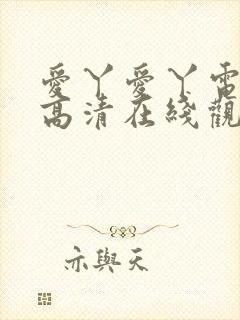 愛丫愛丫電
高清在綫觀
亦與天